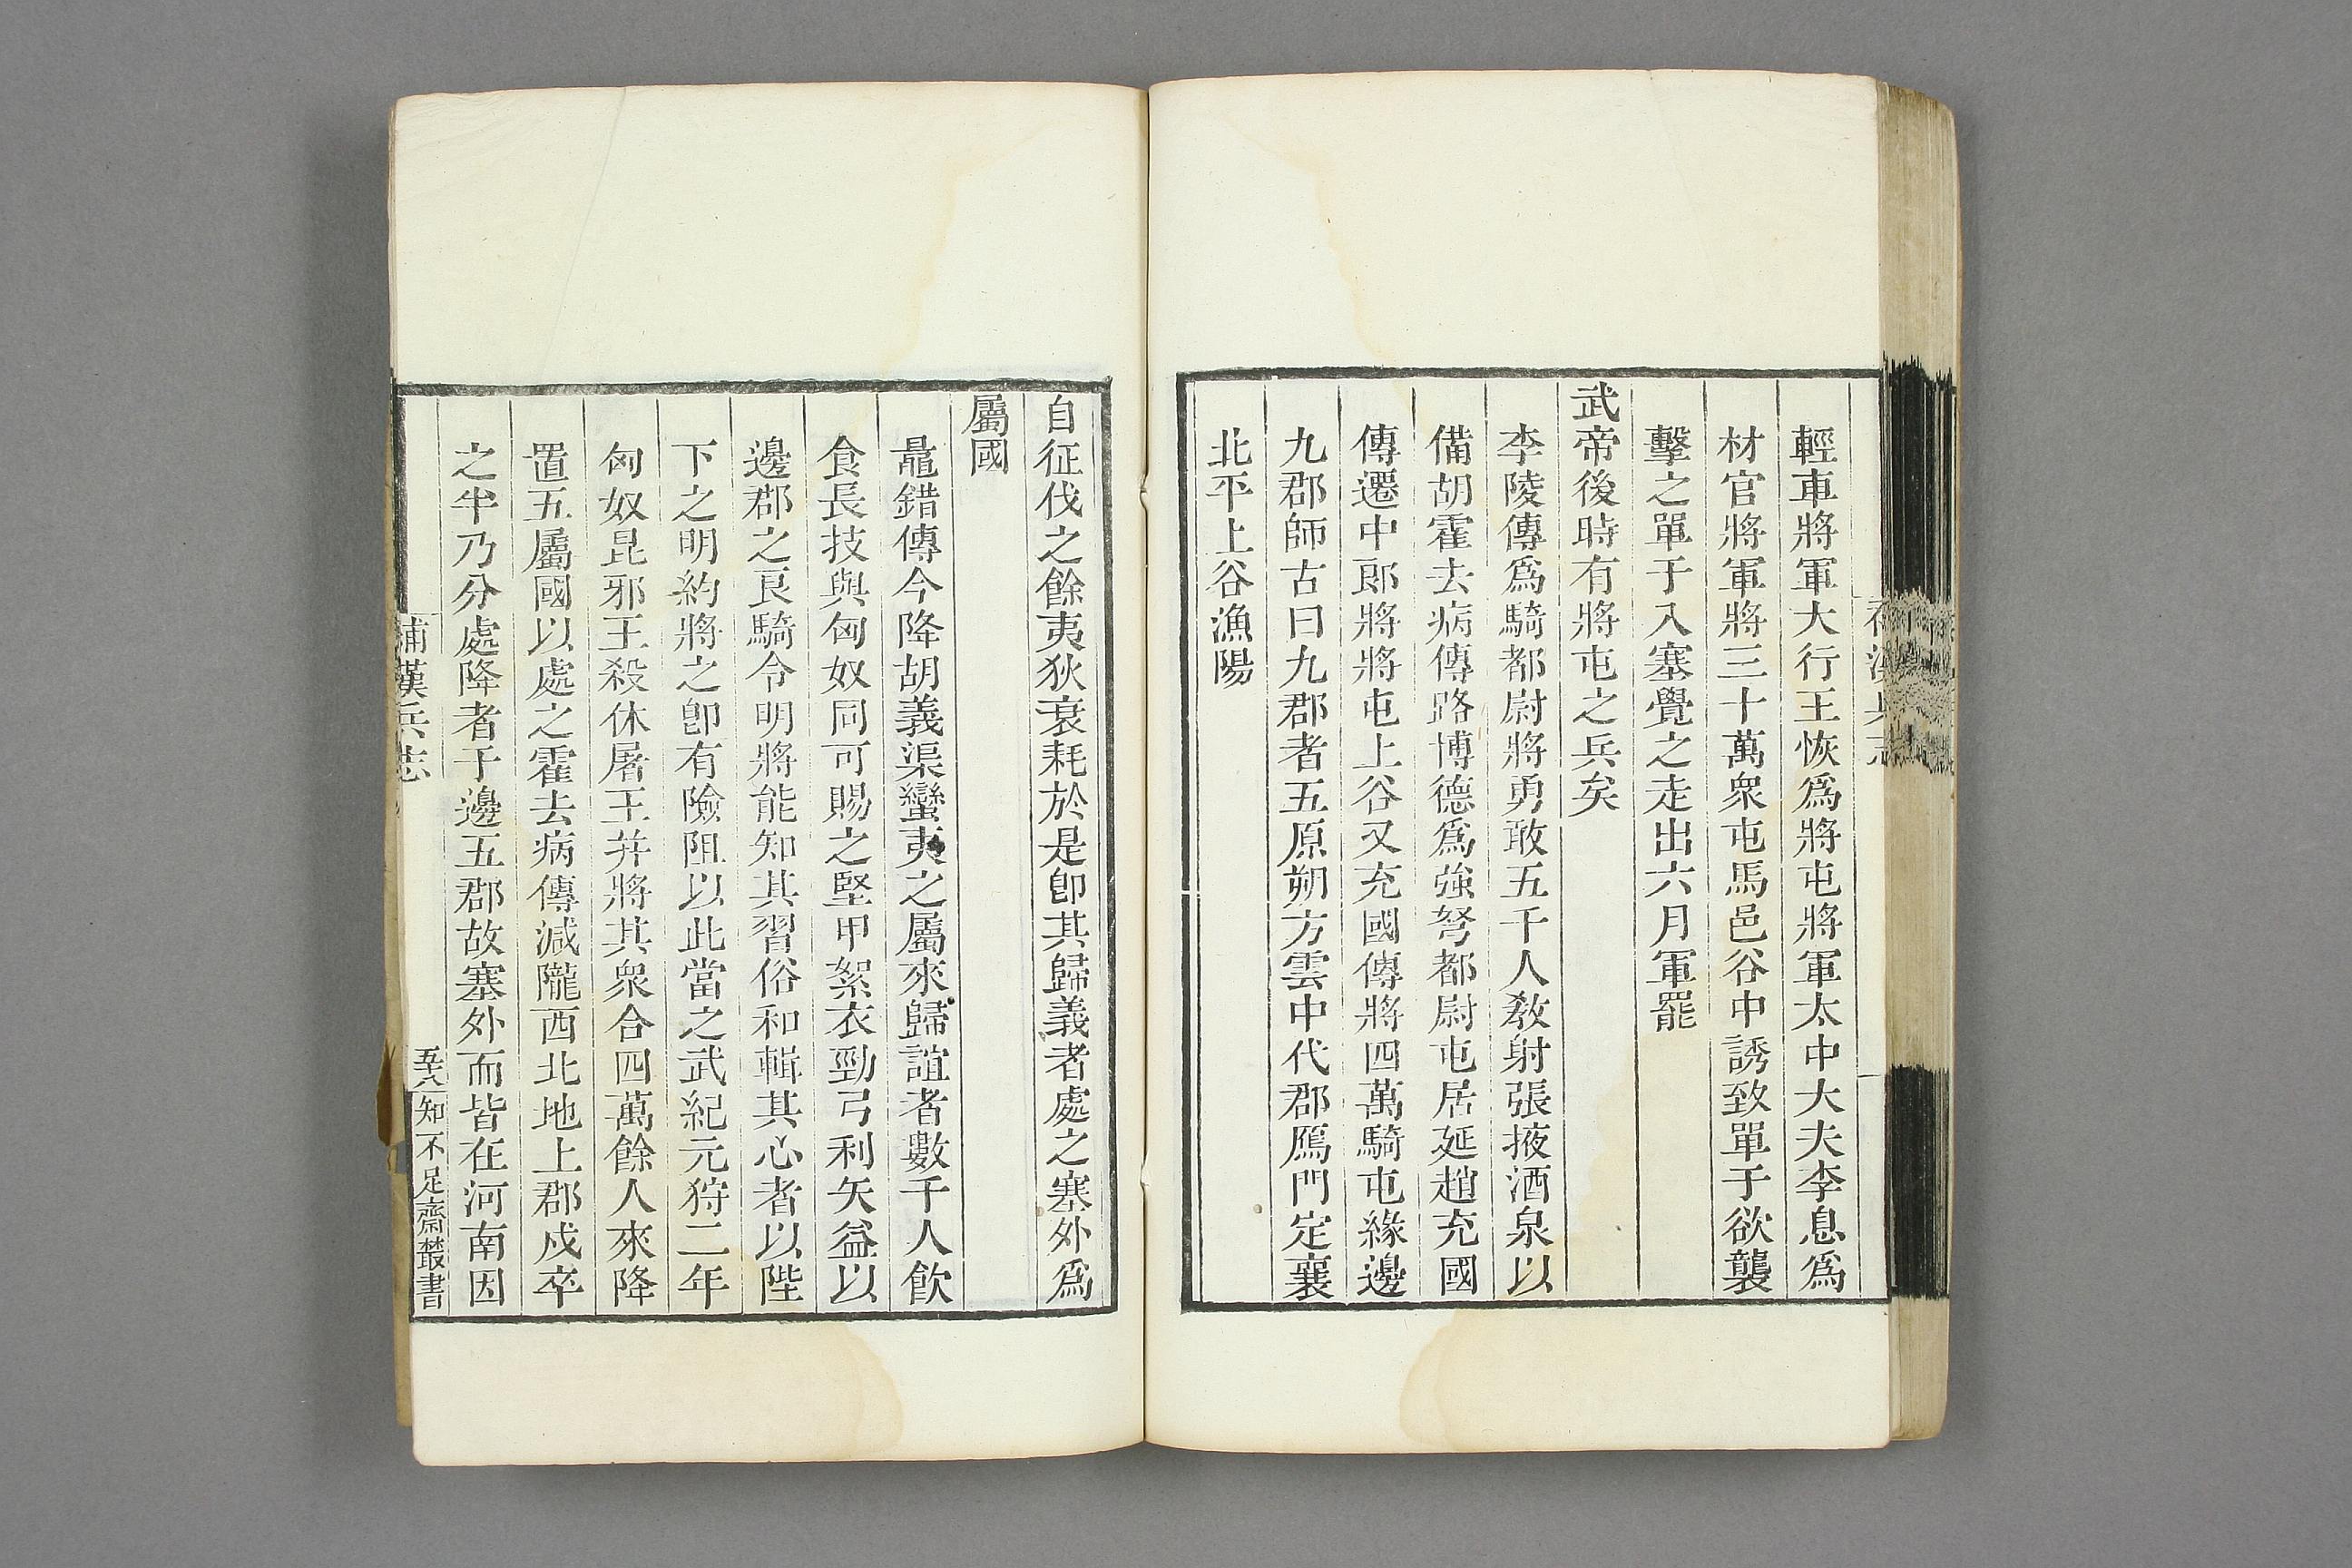 輕車將軍大行王恢爲將屯將軍太中大夫李息爲
材官將軍將三十萬衆屯馬邑谷中誘致單于欲襲
擊之單于入塞覺之走出六月軍罷
武帝後時有將屯之兵矣
李陵傳爲騎都尉將勇敢五千人敎射張掖酒泉以
備胡霍去病傳路博德爲強弩都尉屯居延趙充國
傳遷中郞將將屯上谷又充國傳將四萬騎屯緣邊
九郡師古曰九郡者五原朔方雲中代郡鴈門定襄
北平上谷漁陽
自征伐之餘夷狄衰耗於是卽其歸義者處之塞外爲
屬國
鼂錯傳今降胡義渠蠻夷之屬來歸誼者數千人飮
食長技與匈奴同可賜之堅甲絮衣勁弓利矢益以
邊郡之良騎令明將能知其習俗和輯其心者以陛
下之明約將之卽有險阻以此當之武紀元狩二年
匈奴昆邪王殺休屠王并將其衆合四萬餘人來降
置五屬國以處之霍去病傳減隴西北地上郡戍卒
之半乃分處降者于邊五郡故塞外而皆在河南因
補漢兵志
知不足齋叢書